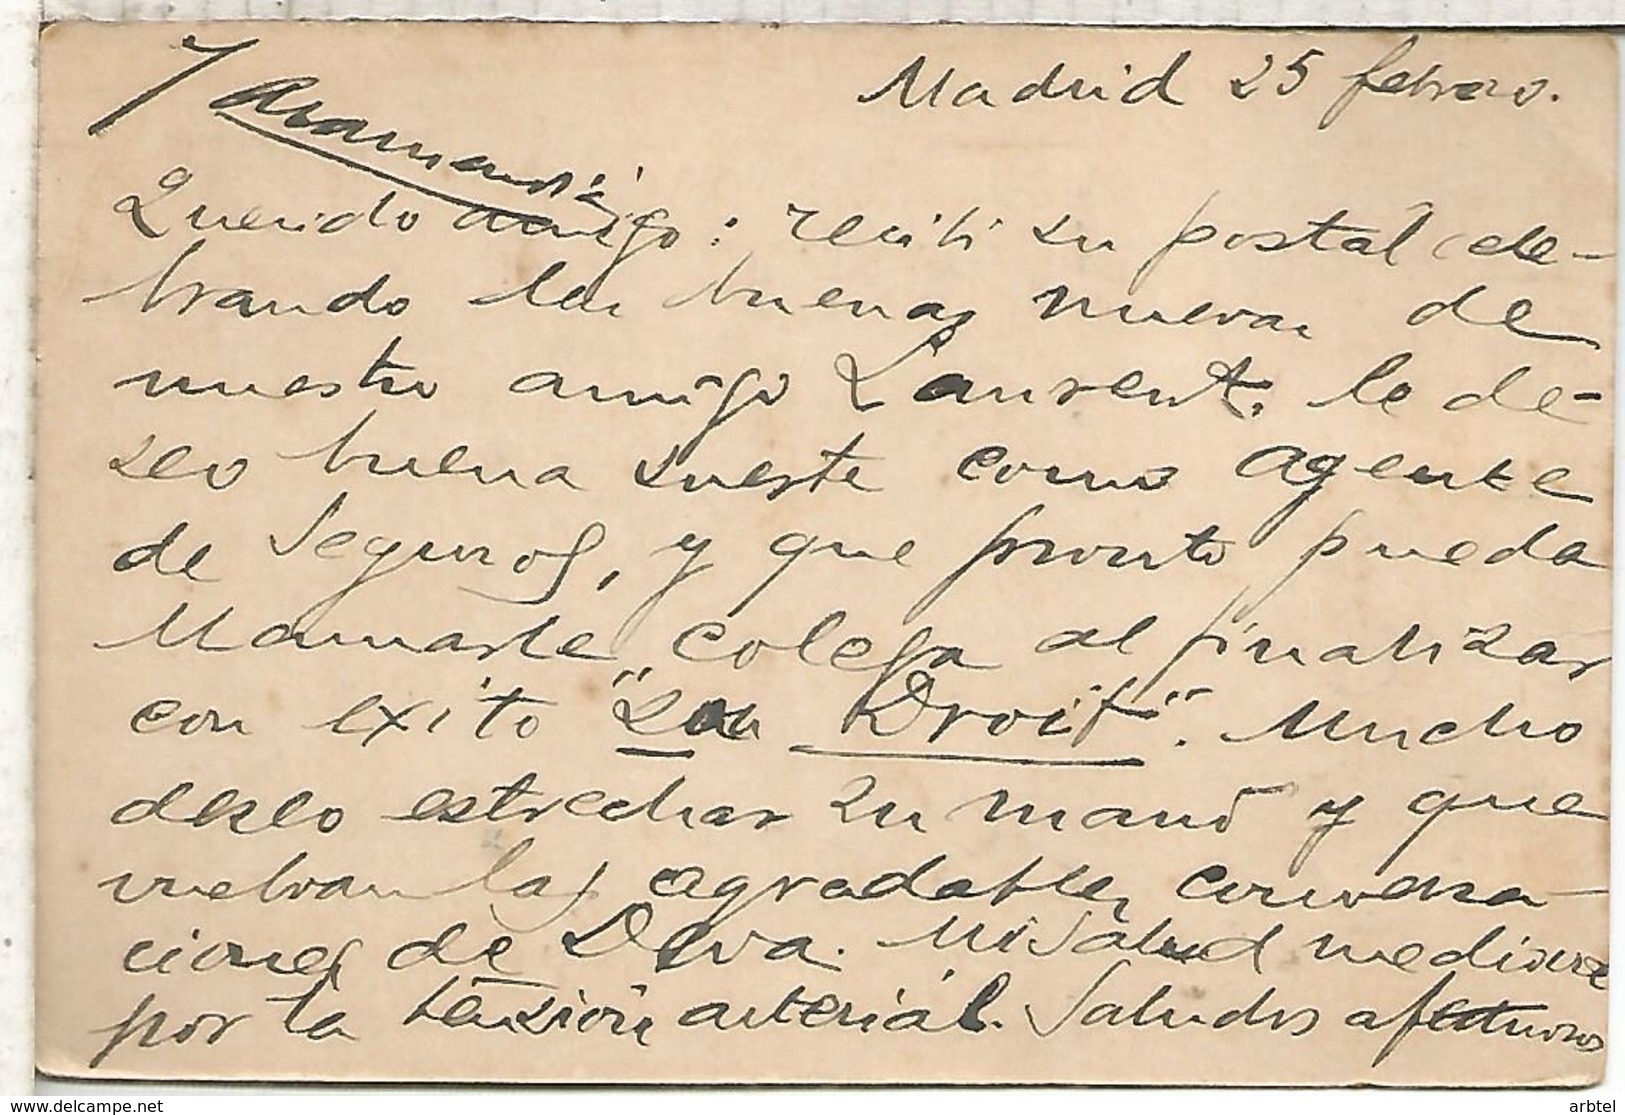 Madrid 25 febrero.
Querido amigo: recibi su postal cele-
brando las buenas nuevas de
nuestro amigo Laurent. le de-
seo buena suerte como agente
de Seguros, y que pronto pueda
llamarle "colega" al finalizar
con exito "su Droit". Mucho
deseo estrechar su mano y que
vuelvan las agradables conversa-
ciones de Deva. Mi salud mediana
por la tensión arterial. Saludos afectuosos
delcampe.net
arbtel